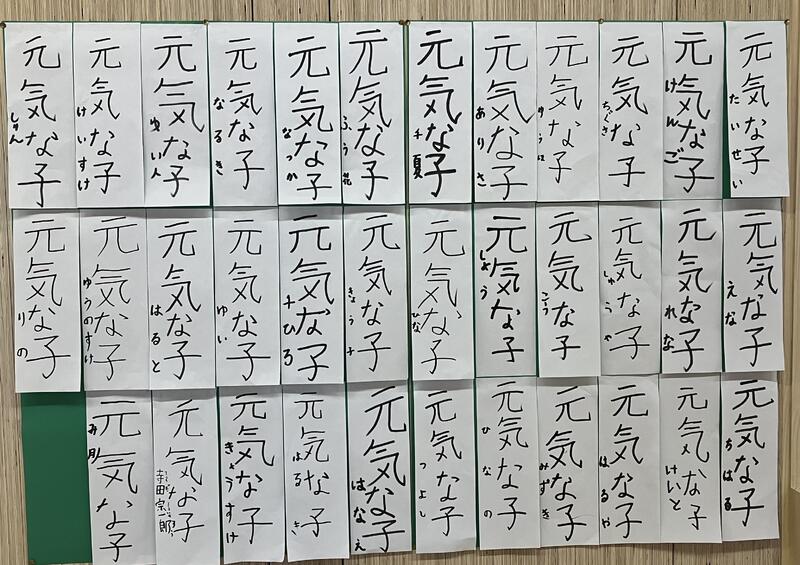 元気な子
たいせい
元気な子
けんご
元気な子
元気な子
元気な子
ありさ
元気な子
千夏
元気な子
ふう花
元気な子
なつか
元気な子
なるき
元気な子
ゆい人
元気な子
けいすけ
元気な子
しゅん
元気な子
えな
元気な子
れな
元気な子
しゅうや
元気な子
こう
元気な子
しょう
元気な子
ひな
元気な子
元気な子
千ひる
元気な子
ゆい
元気な子
はると
元気な子
ゆうのすけ
元気な子
りの
元気な子
ちはる
元気な子
けいと
元気な子
はるや
元気な子
みずき
元気な子
ひなの
元気な子
つよし
元気な子
はなえ
元気な子
はるき
元気な子
きょうすけ
元気な子
寺田宗一郎
元気な子
み月